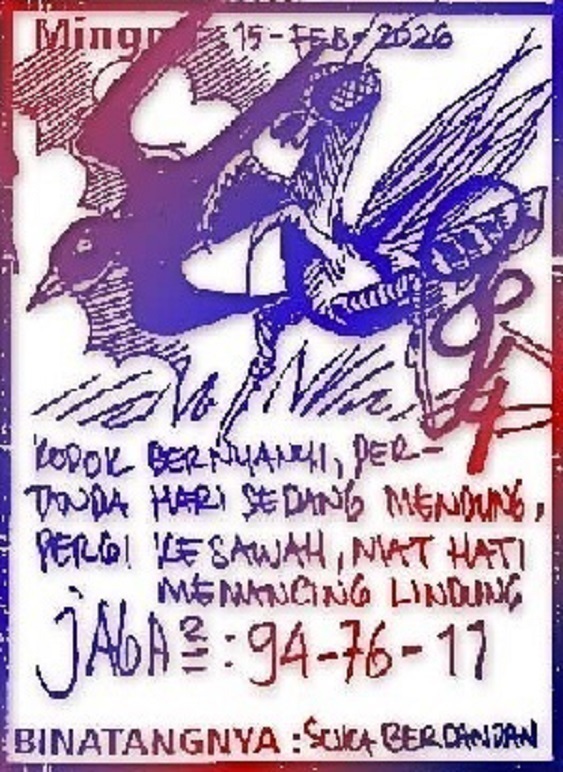 Minggu 15-FEB-2026
KODOK BERNYANYI, PER-
TANDA HARI SEDANG MENDUNG,
PERGI KESAWAH, NIAT HATI
MEMANCING LINDUNG
JAGA2=: 94-76-17
BINATANGNYA : SUKA BERDANDAN